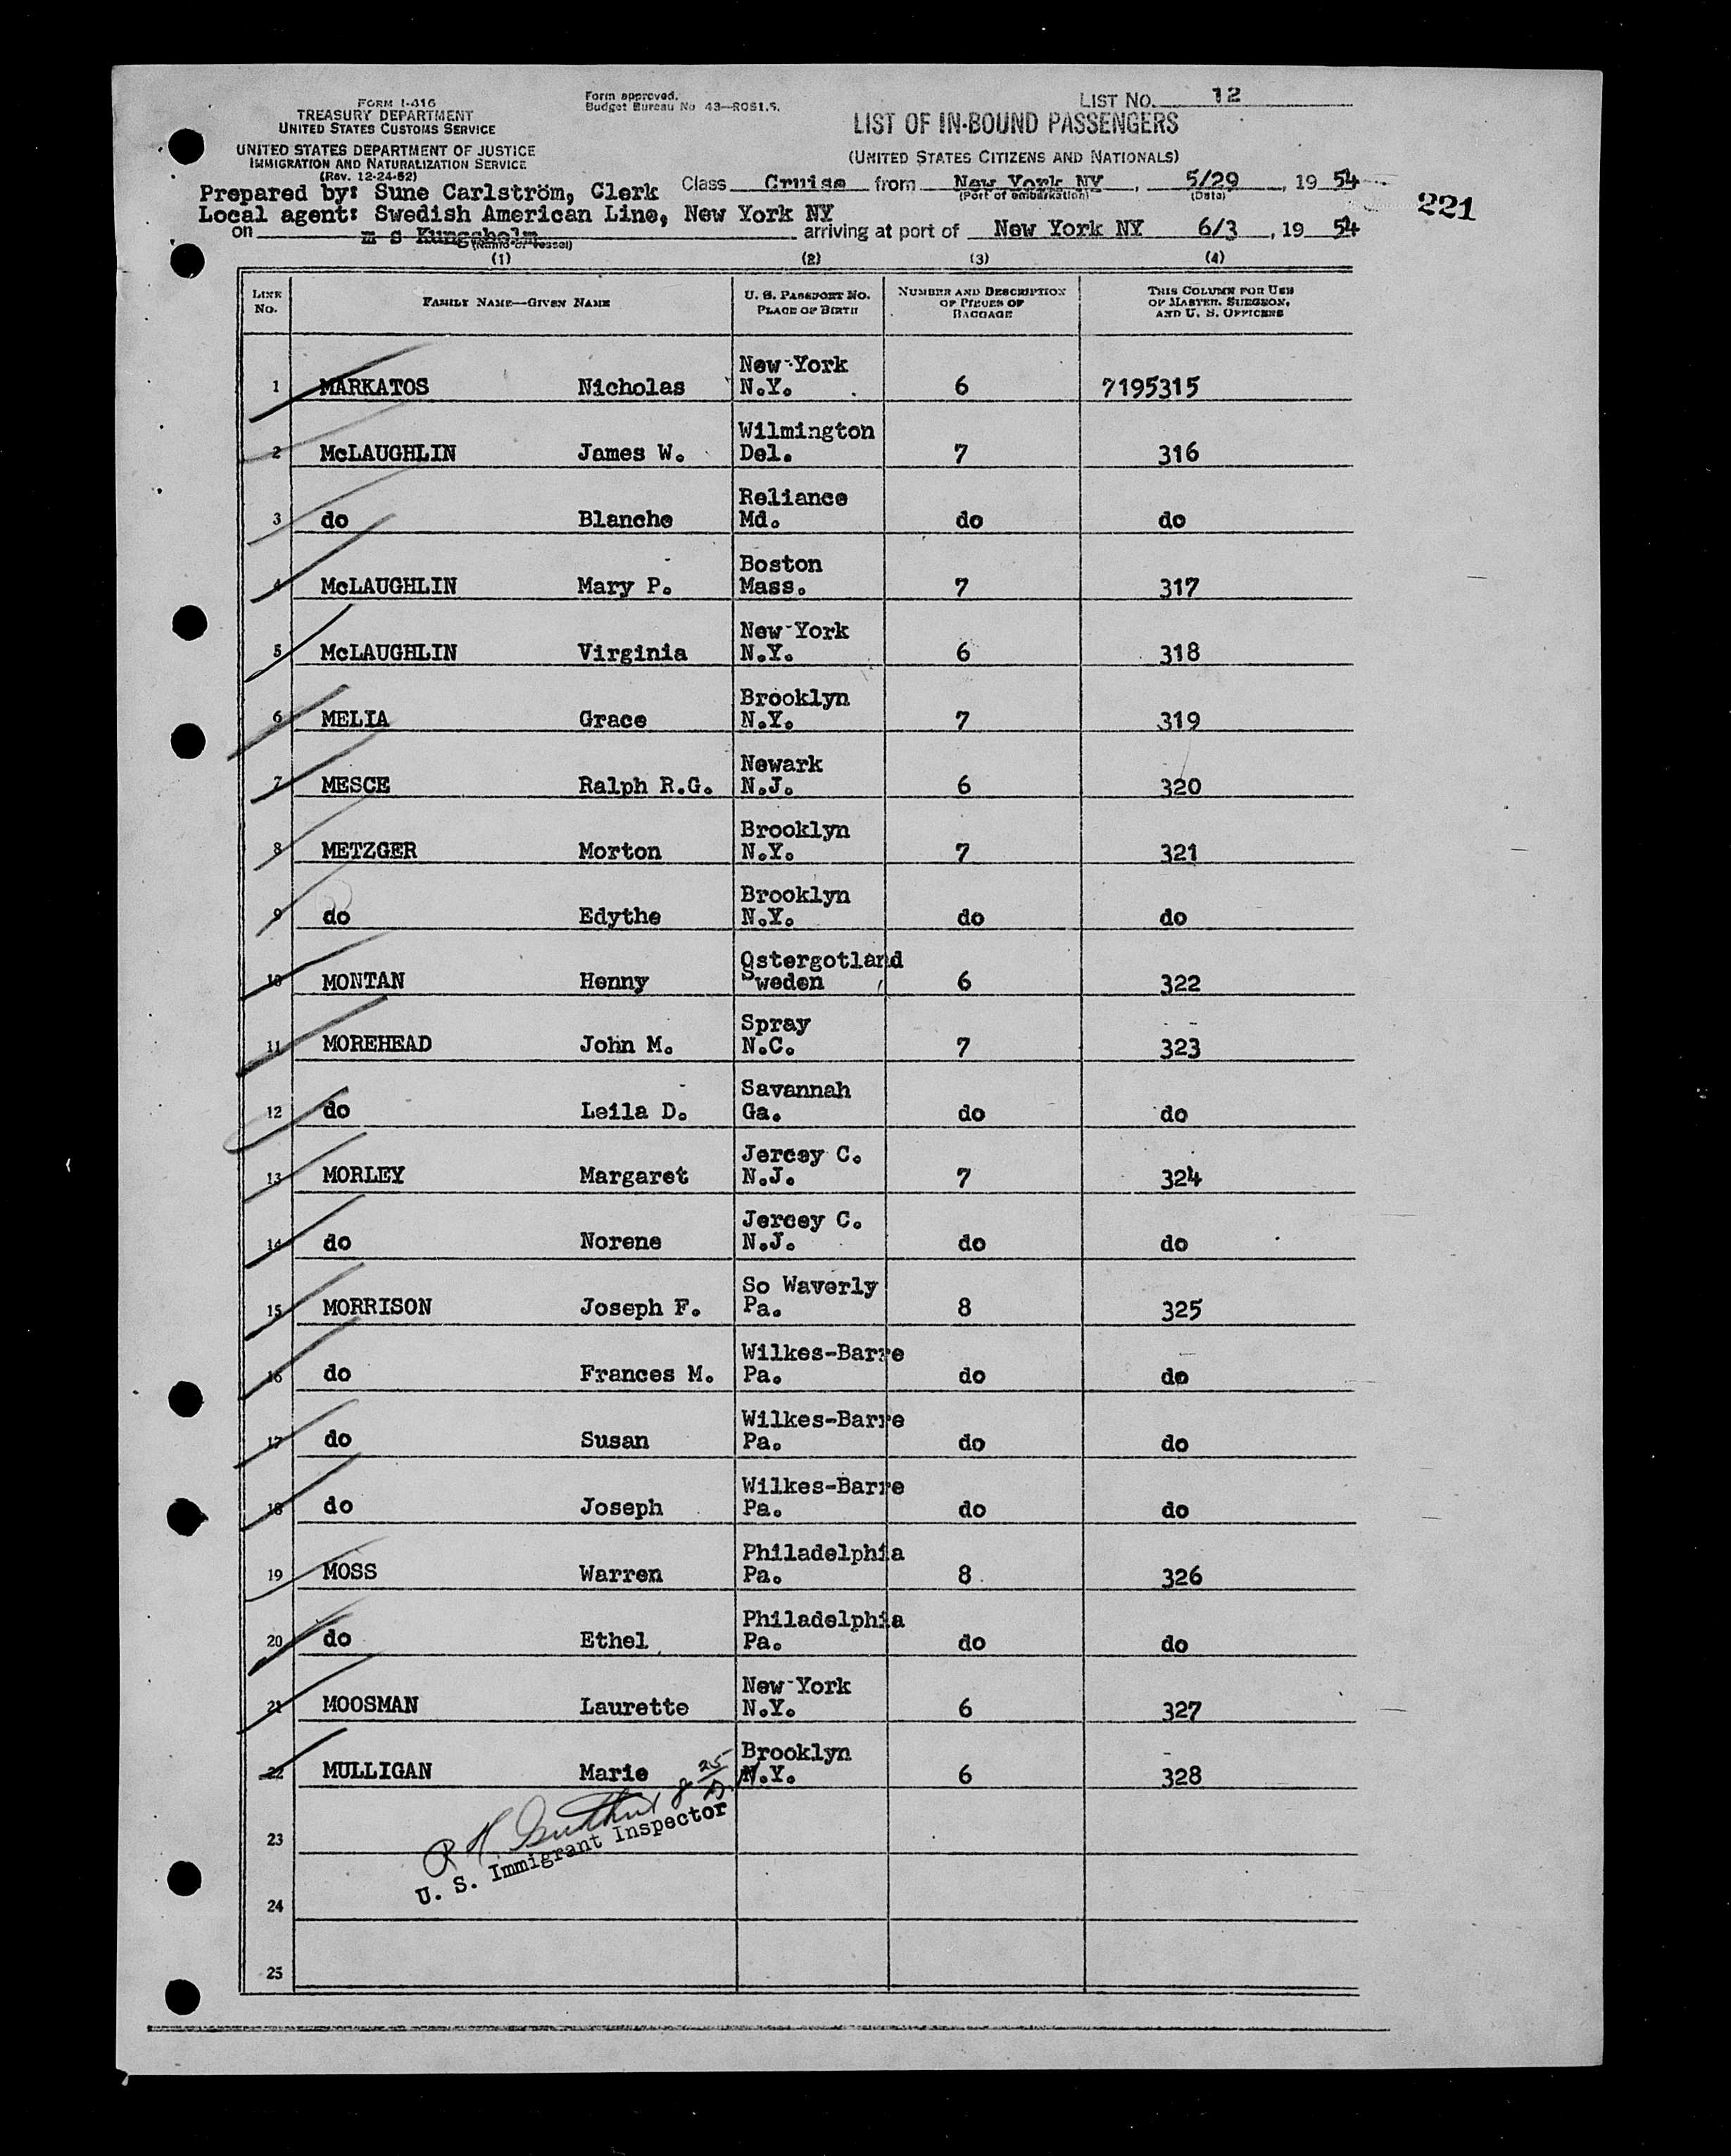 FORM I-416
TREASURY DEPARTMENT
UNITED STATES CUSTOMS SERVICE
UNITED STATES DEPARTMENT OF JUSTICE
IMMIGRATION AND NATURALIZATION SERVICE
(Rev. 12-24-52)
Form approved.
Budget Bureau No 43—R051.5.
LIST NO. 12
LIST OF IN-BOUND PASSENGERS
(UNITED STATES CITIZENS AND NATIONALS)
Prepared by: Sune Carlström, Clerk
Class Cruise from New York NY, 5/29, 19 54
(Port of embarkation) (Date)
221
Local agent: Swedish American Line, New York NY
on m s Kungsholm arriving at port of New York NY 6/3, 19 54
(Name of vessel)
(1) (2) (3) (4)
LINE NO. FAMILY NAME—GIVEN NAME U. S. PASSPORT NO. PLACE OF BIRTH NUMBER AND DESCRIPTION OF PIECES OF BAGGAGE THIS COLUMN FOR USE OF MASTER, SURGEON, AND U. S. OFFICERS
1 MARKATOS Nicholas New York N.Y. 6 7195315
2 McLAUGHLIN James W. Wilmington Del. 7 316
3 do Blanche Reliance Md. do do
4 McLAUGHLIN Mary P. Boston Mass. 7 317
5 McLAUGHLIN Virginia New York N.Y. 6 318
6 MELIA Grace Brooklyn N.Y. 7 319
7 MESCE Ralph R.G. Newark N.J. 6 320
8 METZGER Morton Brooklyn N.Y. 7 321
9 do Edythe Brooklyn N.Y. do do
10 MONTAN Henny Ostergotland Sweden 6 322
11 MOREHEAD John M. Spray N.C. 7 323
12 do Leila D. Savannah Ga. do do
13 MORLEY Margaret Jercey C. N.J. 7 324
14 do Norene Jercey C. N.J. do do
15 MORRISON Joseph F. So Waverly Pa. 8 325
16 do Frances M. Wilkes-Barre Pa. do do
17 do Susan Wilkes-Barre Pa. do do
18 do Joseph Wilkes-Barre Pa. do do
19 MOSS Warren Philadelphia Pa. 8 326
20 do Ethel Philadelphia Pa. do do
21 MOOSMAN Laurette New York N.Y. 6 327
22 MULLIGAN Marie Brooklyn N.Y. 6 328
U. S. Immigrant Inspector
23
24
25